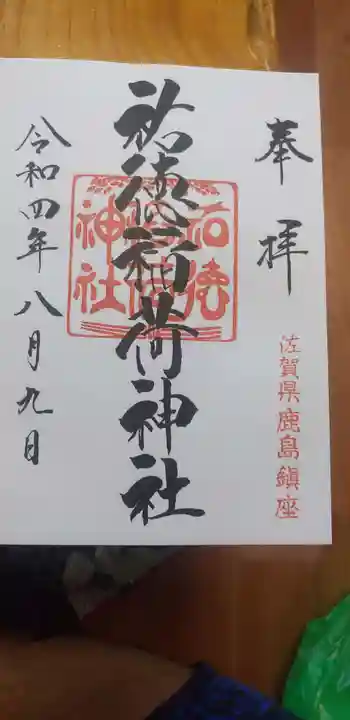 奉拝
佐賀県鹿島鎮座
祐徳稲荷神社
令和四年八月九日